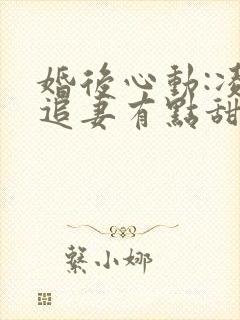 婚後心動:凌
追妻有點甜
蔡小娜